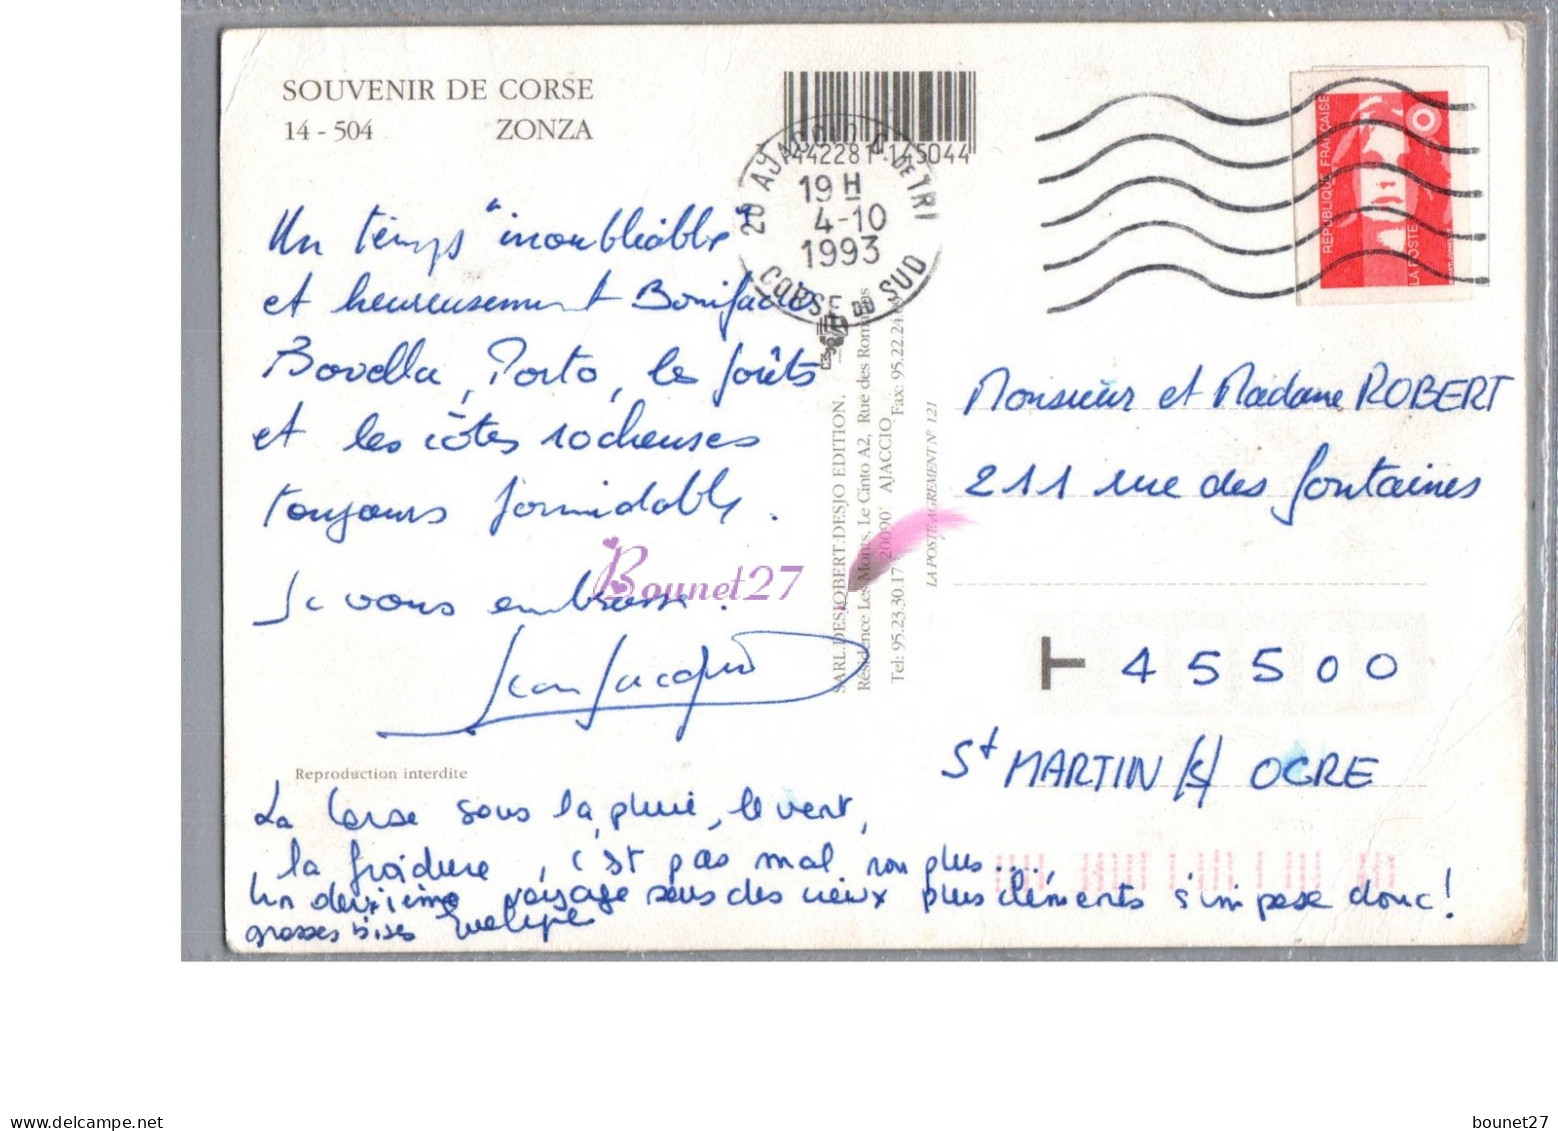 SOUVENIR DE CORSE
14 - 504 ZONZA
Un temps "inoubliable"
et heureusement Bonifacio
Bavella, Porto, les forêts
et les côtes rocheuses
toujours formidables.
Je vous embrasse.
Jean Jacques
Reproduction interdite
La Corse sous la pluie, le vent,
la froidure, c'est pas mal non plus...
Un deuxième voyage sous des cieux plus cléments s'impose donc!
grosses bises
442281 145044
20 AJACCIO C. DE TRI
19 H
4-10
1993
CORSE DU SUD
SARL.DESJOBERT.DESJO EDITION.
Résidence Les Monts, Le Cinto A2, Rue des Romarins
20090 AJACCIO
Tel: 95.23.30.17 Fax: 95.22.24.
LA POSTE AGREMENT N° 121
Bounet27
REPUBLIQUE FRANÇAISE
LA POSTE
Monsieur et Madame ROBERT
211 rue des fontaines
45500
St MARTIN /s/ OCRE
https://www.delcampe.net
bounet27